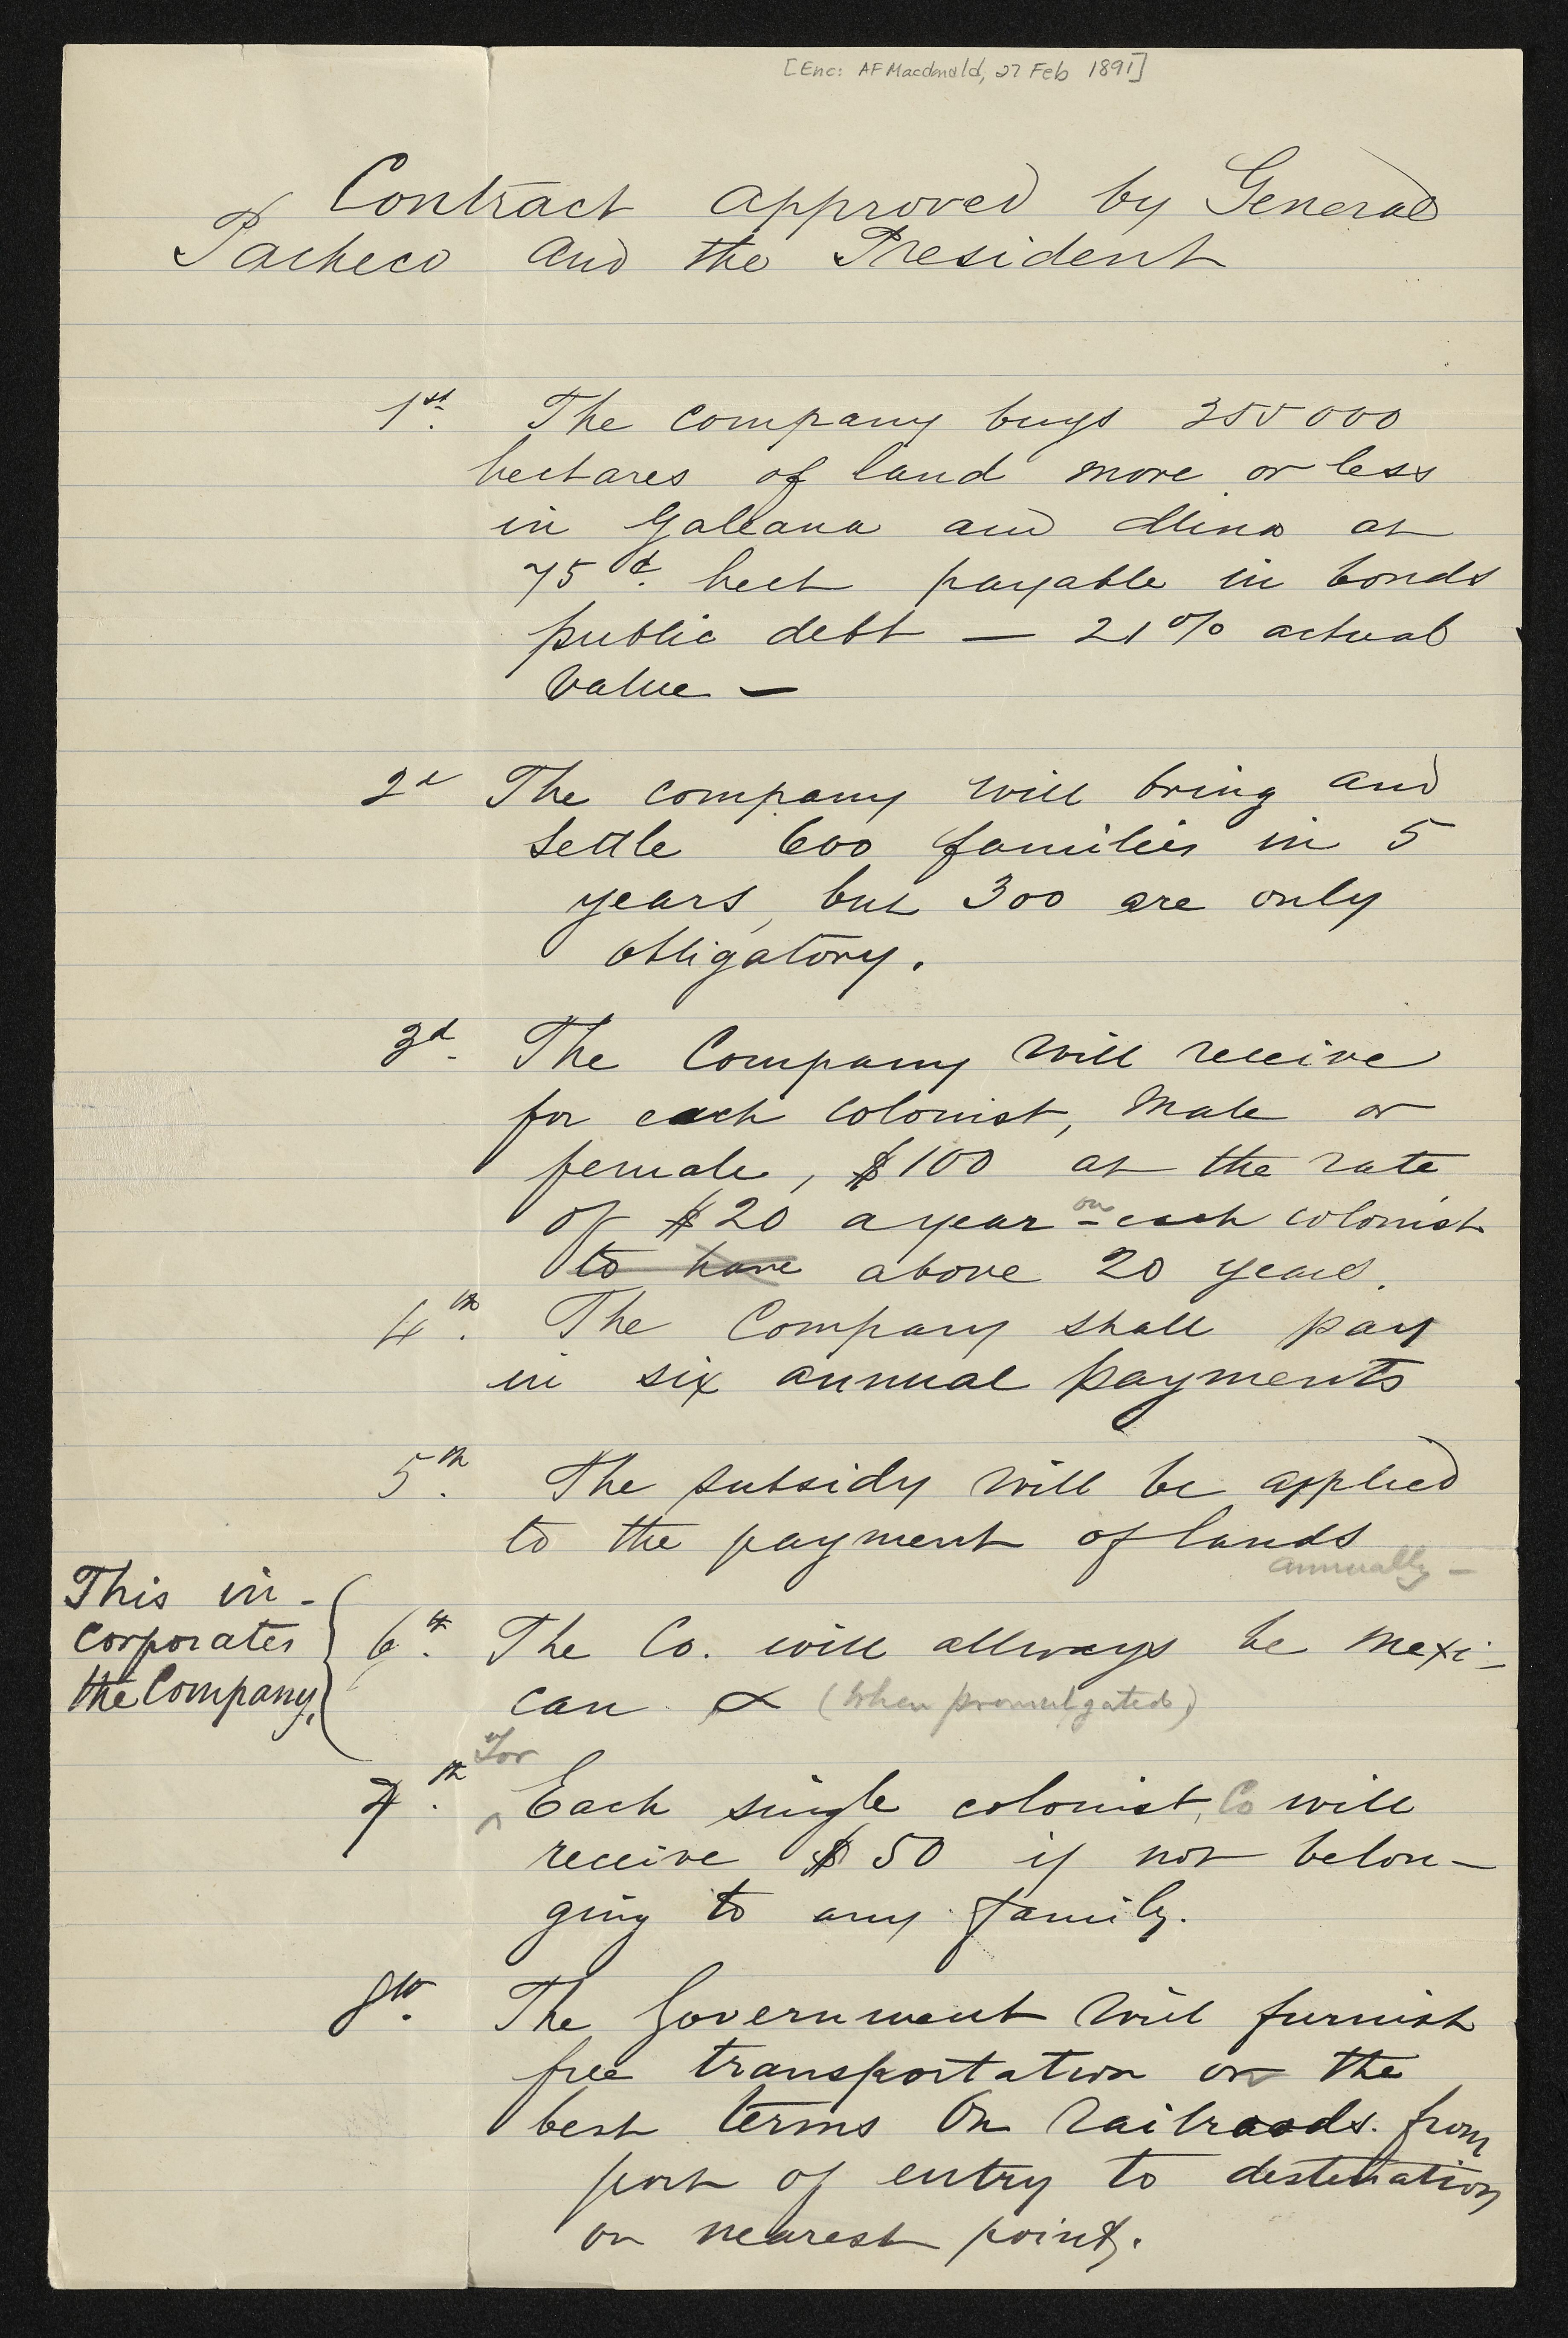 [Enc: AF Macdonald, 27 Feb 1891]
Contract approved by General
Pacheco and the President
1st. The company buys 350000
hectares of land more or less
in Galeana and Mina at
75 ¢. hect payable in bonds
public debt — 21% actual
value —
2d The company will bring and
settle 600 families in 5
years, but 300 are only
obligatory.
3d. The Company will receive
for each colonist, male or
female, $100 at the rate
of $20 a year on each colonist
to have above 20 years.
4th. The Company shall pay
in six annual payments
5th. The subsidy will be applied
to the payment of lands
annually —
This in-
corporates
the Company,
6th. The Co. will allways be Mexi-
can & (when promulgated)
For
7th. ^ Each single colonist, Co will
receive $50 if not belon-
ging to any family.
8th. The Government will furnish
free transportation or the
best terms on railroads. from
port of entry to destination
or nearest point.